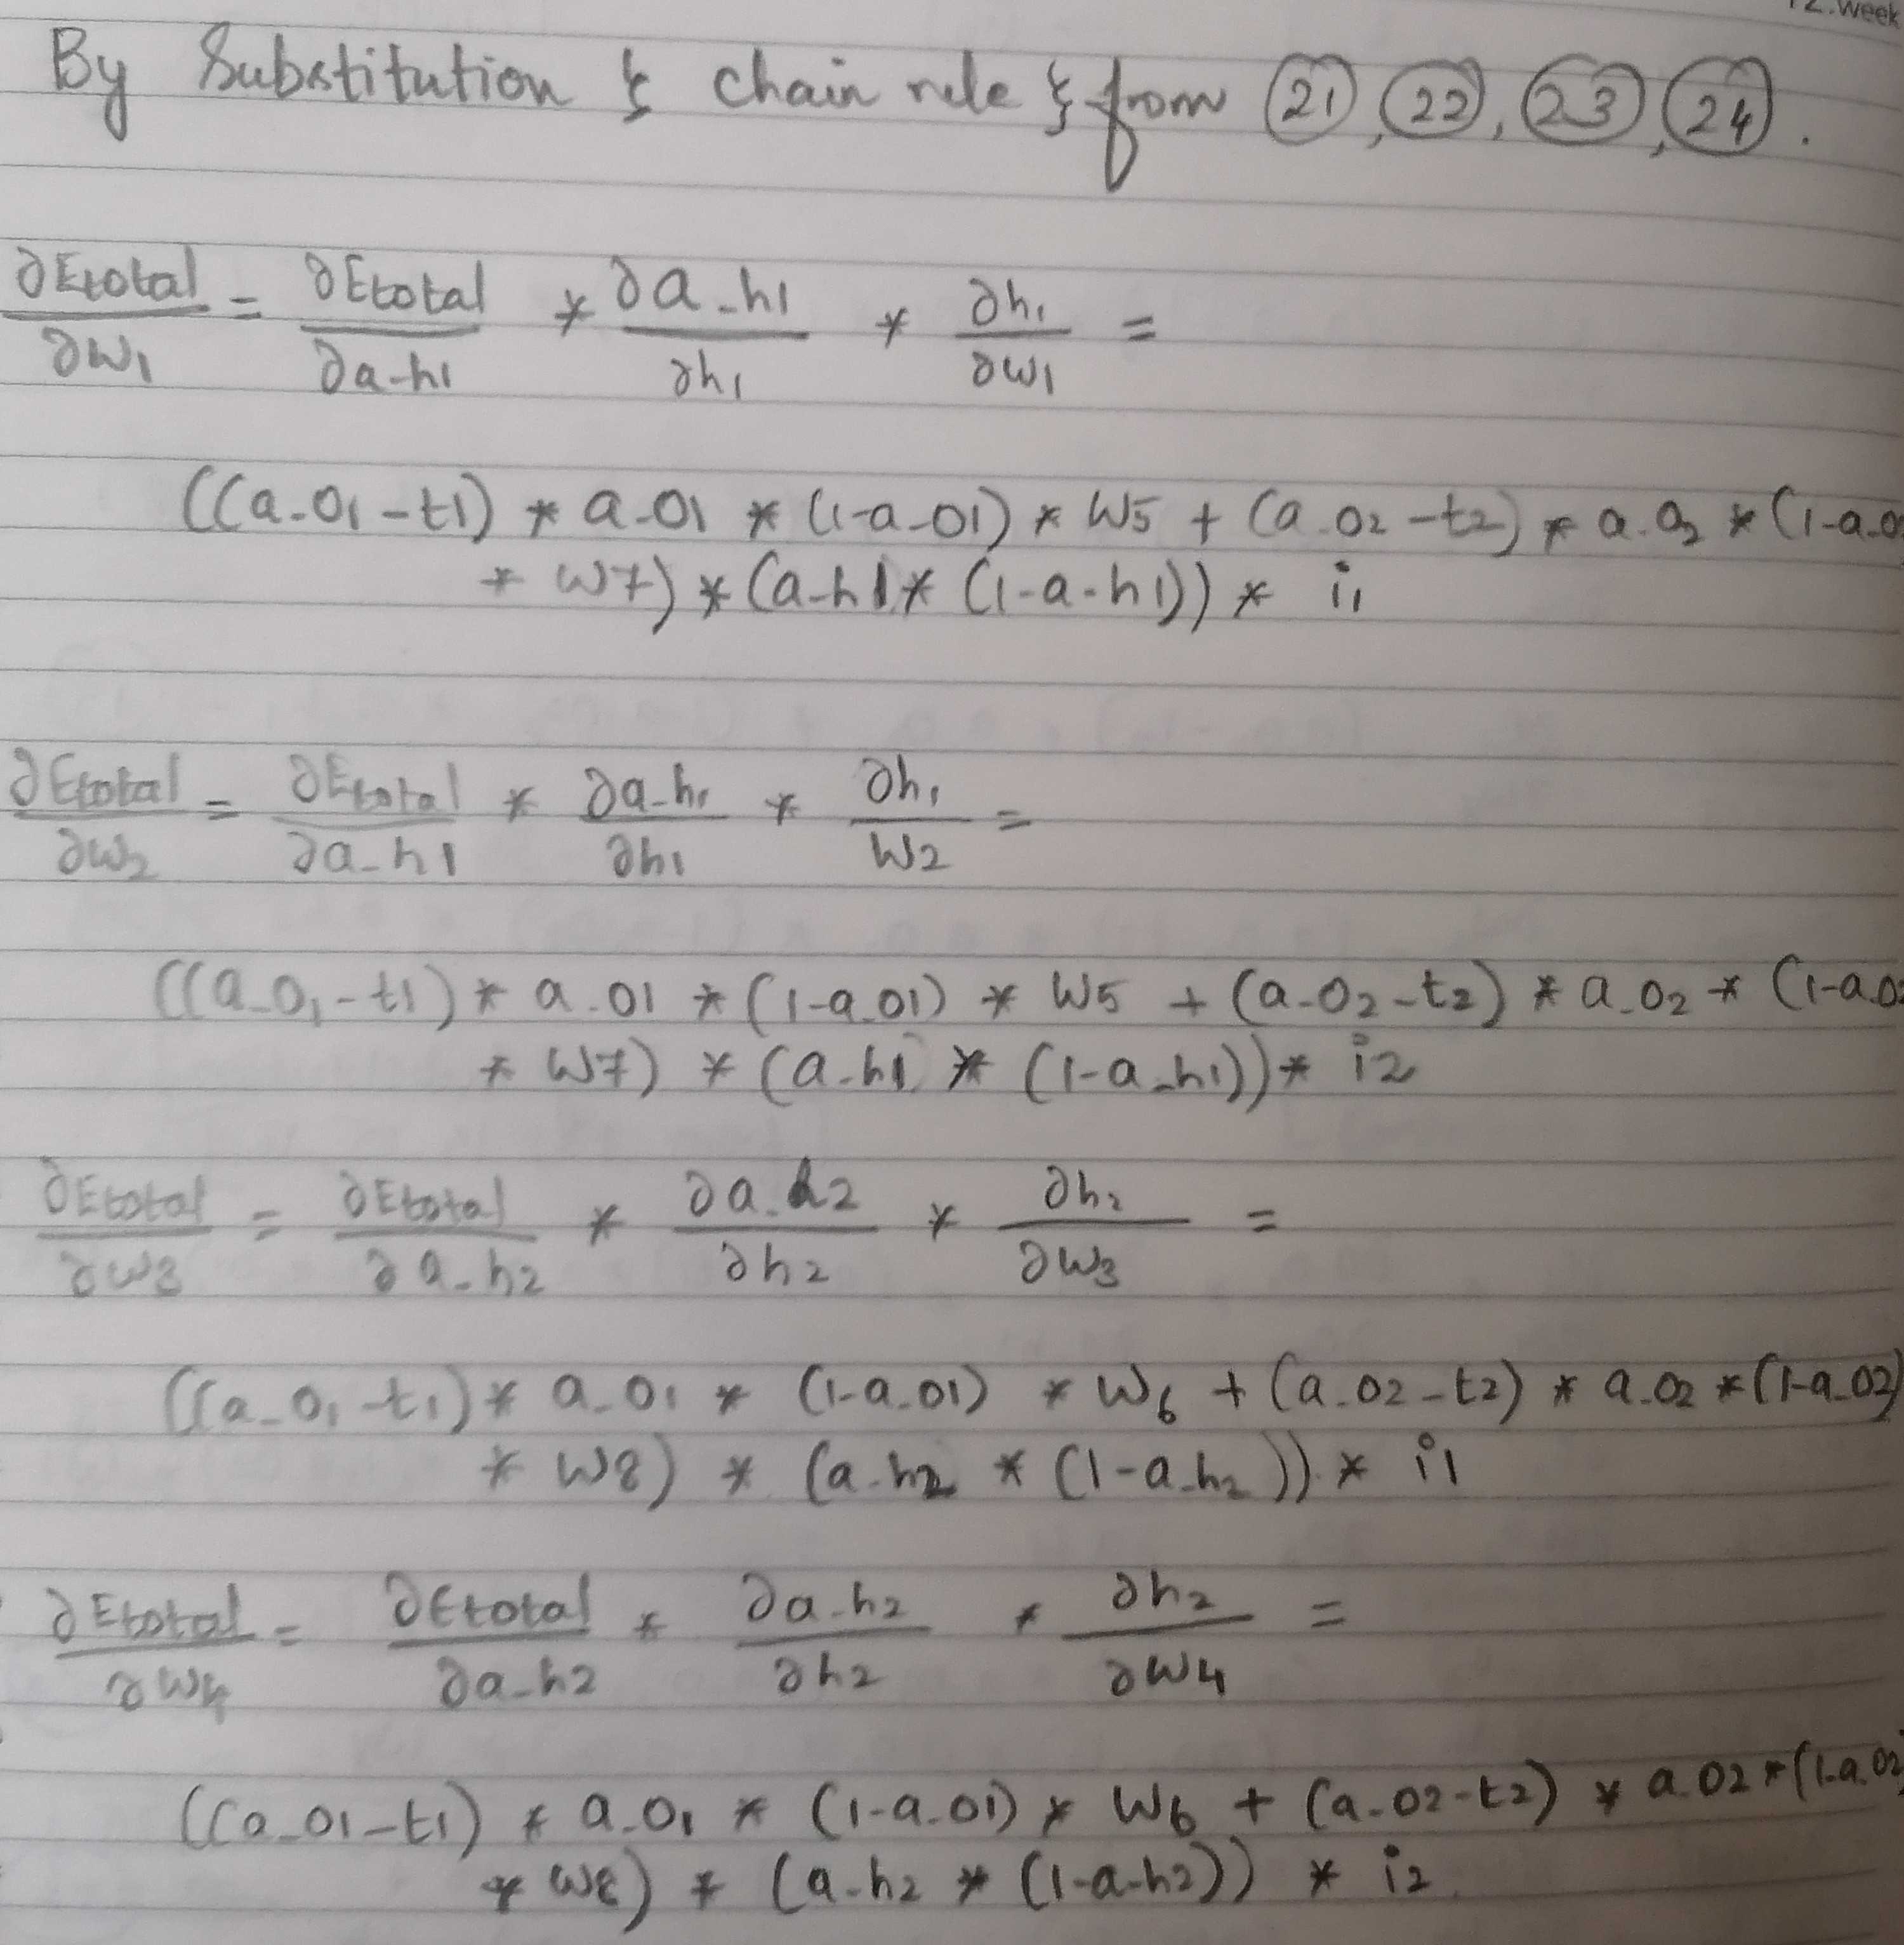 12.Week
By Substitution & chain rule & from (21), (22), (23), (24).
∂Etotal/∂w1 = ∂Etotal/∂a_h1 * ∂a_h1/∂h1 * ∂h1/∂w1 =
((a_o1 - t1) * a_o1 * (1-a_o1) * w5 + (a_o2 - t2) * a_o2 * (1-a_o
* w7) * (a_h1 * (1-a_h1)) * i1
∂Etotal/∂w2 = ∂Etotal/∂a_h1 * ∂a_h1/∂h1 * ∂h1/w2 =
((a_o1 - t1) * a_o1 * (1-a_o1) * w5 + (a_o2 - t2) * a_o2 * (1-a_o2
* w7) * (a_h1 * (1-a_h1)) * i2
∂Etotal/∂w3 = ∂Etotal/∂a_h2 * ∂a_h2/∂h2 * ∂h2/∂w3 =
((a_o1 - t1) * a_o1 * (1-a_o1) * w6 + (a_o2 - t2) * a_o2 * (1-a_o2)
* w8) * (a_h2 * (1-a_h2)) * i1
∂Etotal/∂w4 = ∂Etotal/∂a_h2 * ∂a_h2/∂h2 * ∂h2/∂w4 =
((a_o1 - t1) * a_o1 * (1-a_o1) * w6 + (a_o2 - t2) * a_o2 * (1-a_o2
* w8) * (a_h2 * (1-a_h2)) * i2